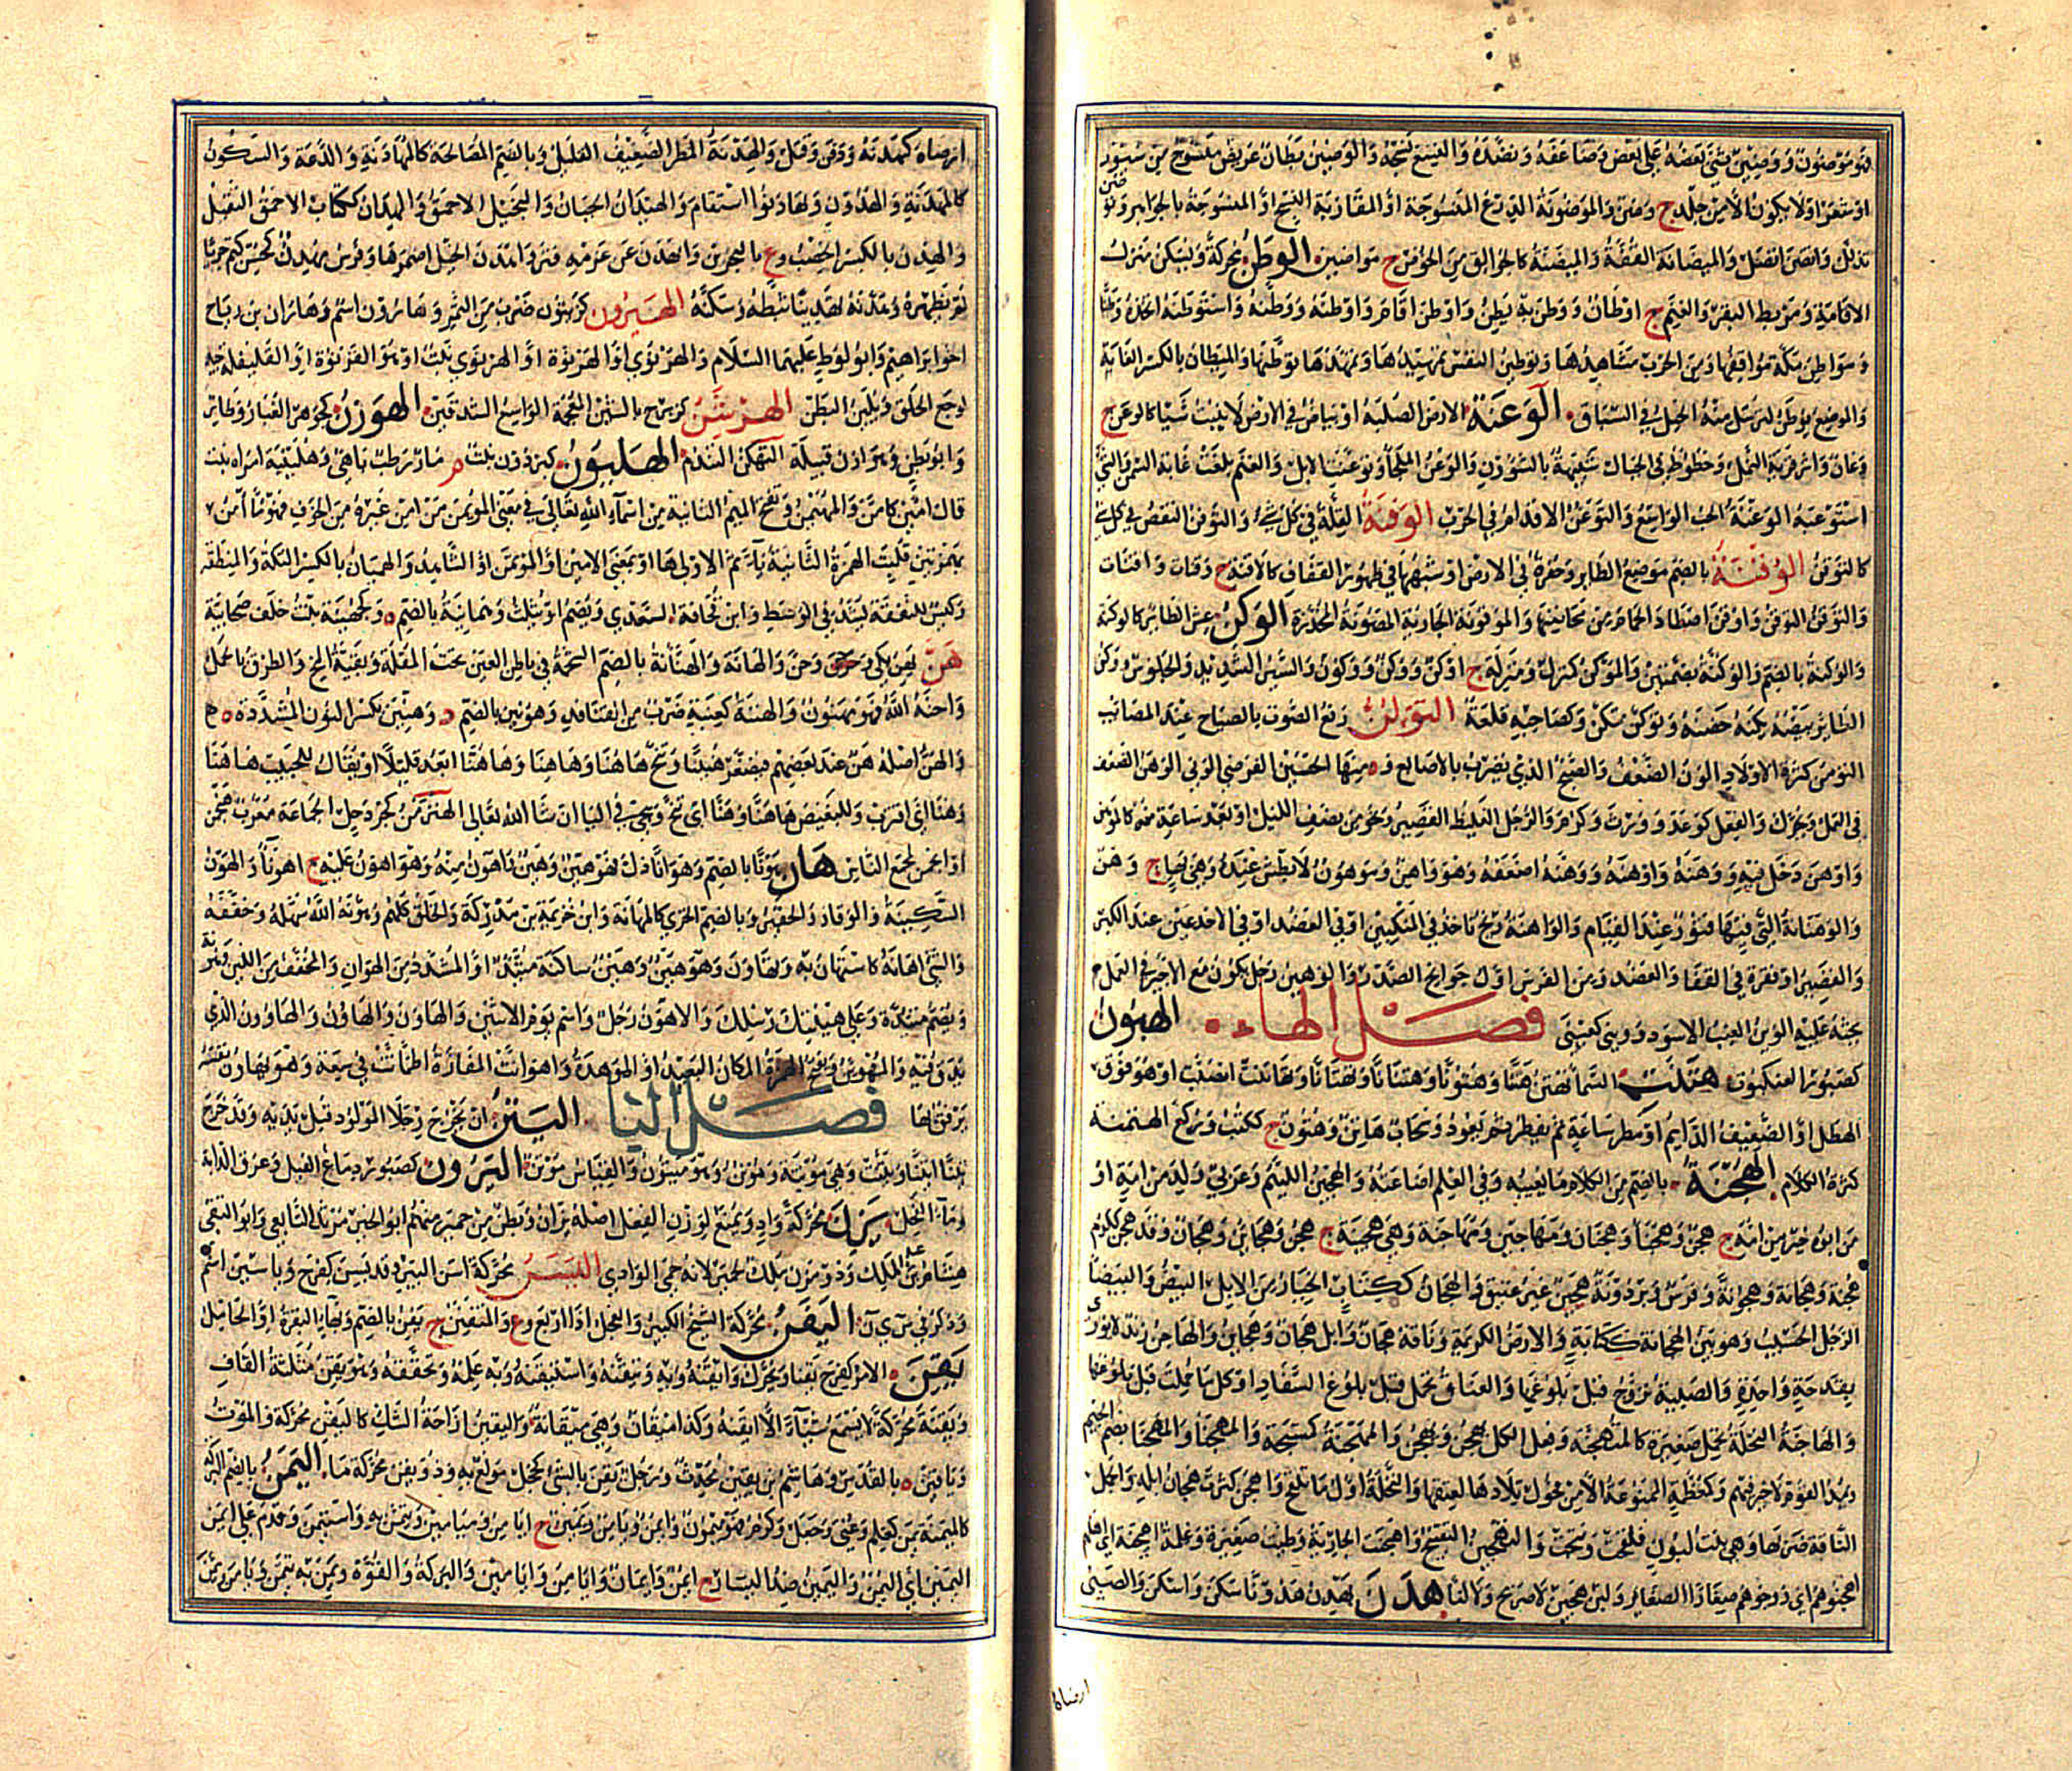 فهو موضون ووضين ثنى بعضه على بعض وضاعفه ونضده والنسع نسجه والوضين بطان عريض منسوج من سيور
او شعر او لا يكون الا من جلد ج وضن والموضونة الدرع المنسوجة او المقاربة النسج او المنسوجة بالجواهر وتوضن
تذلل واتضن اتصل والميضانة القفة والميضنة كالجوالق من الخوص ج مواضين الوطن محركة ويسكن منزل
الاقامة ومربط البقر والغنم ج اوطان ووطن به يطن واوطن اقام واوطنه ووطنه واستوطنه اتخذه وطنا
ومواطن مكة مواقفها ومن الحرب مشاهدها وتوطين النفس تمهيدها وتمهدها توطنها والميطان بالكسر الغاية
والموضع يوطن لترسل منه الخيل في السباق الوعنة الارض الصلبة او بياض في الارض لا ينبت شيا كالوعن ج
وعان واثر قرية النمل وخطوط في الجبال شبيهة بالشؤون والوعن الملجأ وتوعنت الابل والغنم بلغت غاية السمن والشئ
استوعبه الوغنة الجب الواسع والتوغن الاقدام في الحرب الوفنة القلة في كل شئ والتوفن النقص في كل شئ
كالتوفن الوقنة بالضم موضع الطاير وحفرة في الارض او شبهها في ظهور القفاف كالاقنة ج وقنات واقنات
والتوقن التوقل واوقن اصطاد الحمام من محاضنها والموقونة الجارية المصونة المخدرة الوكن عش الطائر كالوكنة
والوكنة بالضم والوكنة بضمتين والموكن كمنزل ومنزلة ج اوكن ووكن ووكون والسير الشديد والجلوس ووكن
الطائر بيضه يكنه حضنه وتوكن تمكن وكصاحبه قلعة التولن رفع الصوت بالصياح عند المصائب
التومن كثرة الاولاد الون الضعف والصنج الذي يضرب بالاصابع وه منها الحسين الفرضي الوني الوهن الضعف
في العمل ويحرك والفعل كوعد وورث وكرم والرجل الغليظ القصير ونحو من نصف الليل او بعد ساعة منه كالموهن
واوهن دخل فيه ووهنه واوهنه ووهنه اضعفه وهو واهن وموهون لا بطش عنده وهي بهاء ج وهن
والوهنانة التي فيها فتور عند القيام والواهنة ريح تاخذ في المنكبين او في العضد او في الاخدعين عند الكبر
والقصيرا وفقرة في القفا والعضد ومن الفرس اول جوانح الصدر والوهين رجل يكون مع الاجير في العمل
يحثه عليه الوين العنب الاسود ووينى كعيسى فصل الهاء الهبون
كصبور العنكبوت هتنت السماء تهتن هتنا وهتونا وهتنانا وتهتانا وتهاتنت انصبت او هو فوق
الهطل او الضعيف الدايم او مطر ساعة ثم يفطر ثم يعود وسحاب هاتن وهتون ج ككتب وركع الهتمنة
كثرة الكلام الهجنة بالضم من الكلام ما يعيبه وفي العلم اضاعته والهجين اللئيم وعربي ولد من امة او
من ابوه خير من امه ج هجن وهجناء وهجنان ومهاجين ومهاجنة وهي هجينة ج هجن وهجائن وهجان وقد هجن ككرم
هجنة وهجانة وهجونة وفرس وبرذونة هجين غير عتيق والهجان ككتاب الخيار من الابل البيض والبيضا
الرجل الحسيب وهو بين الهجانة ككتابة والارض الكريمة وناقة هجان وابل هجان وهجائن والهاجن زند لا يورى
بقدحة واحدة والصبية تزوج قبل بلوغها والعناق تحمل قبل بلوغ السفاد او كل ما حملت قبل بلوغها
والهاجنة النخلة تحمل صغيرة كالمتهجنة وفعل الكل يهجن ويهجن والمهجنة كمسبحة والمهجنا والمهجنا بضم الجيم
ومد القوم لا خير فيهم وكمعظمة الممنوعة الا من فحول بلادها لعتقها والنخلة اول ما تلقح واهجن كثرت هجان ابله والجمل
الناقة ضربها وهي بنت لبون فلقحت ونتجت والتهجين التقبيح واهتجنت الجارية وطئت صغيرة وغلمة اهجنة اي اهلهم
اهجنوهم اي زوجوهم صغارا الصغاير ولبن هجين لا صريح ولا لباء هدن يهدن هدونا سكن واسكن والصبي
ارضاه
ارضاه كهدنه ودفن وقتل والهدنة المطر الضعيف القليل وبالضم المصالحة كالمهادنة والدعة والسكون
كالمهدنة والهدون وتهادنوا استقام والهيدان الجبان والبخيل الاحمق والهدان ككتاب الاحمق الثقيل
والهدن بالكسر الخصب وع بالبحرين وانهدن عن عزمه فتر واهدن الخيل اضمرها وفرس مهدن كمحسن كتم جريا
لم يظهره وهدنه تهدينا ثبطه وسكنه الهيرون كزيتون ضرب من التمر وهارون اسم وهاران بن
اخو ابراهيم وابو لوط عليهما السلام والهرنوي او الهرنوة او الهرنوى نبت او هو القرنوة او القليفلة جيد
لوجع الحلق ويلين البطن الهرشن كزبرج بالشين المعجمة الواسع الشدقين الهوزن كجوهر الغبار وطائر
وابو بطن وهوازن قبيلة التهكن التندم الهليون كبرذون نبت م حار رطب باهي وهلينية امراة
قال امين كامن والمهيمن وتفتح الميم الثانية من اسماء الله تعالى في معنى المؤمن من امن غيره من الخوف فهو مؤامن
بهمزتين قلبت الهمزة الثانية ياء ثم الاولى هاء او بمعنى الامين او المؤتمن او الشاهد والهميان بالكسر التكة والمنطقة
وكيس للنفقة يشد في الوسط وابن قحافة السعدي ويضم او يثلث وهمانية بالضم ه وكجهينة بنت خلف صحابية
هن يهن بكى وحن والهانة والهنانة بالضم الشحمة في باطن العين تحت المقلة وبقية المخ والطرق بالجمل
واهنه الله فهو مهنون والهننة كعنبة ضرب من القنافذ وهونين بالضم د وهنين بكسر النون المشددة ه
والهن اصله هن عند بعضهم فيصغر هنينا وتنح هاهنا وهاهنا وهاهنا ابعد قليلا او يقال للحبيب هاهنا
وهنا اي اقترب وللبغيض هاهنا وهنا اي تنح ويجئ في الياء ان شاء الله تعالى الهنزمن كجردحل الجماعة معرب هنجمن
او انجمن لمجمع الناس هان هونا بالضم وهوانا ذل فهو هين وهين واهون منه وهو اهون عليه ج اهوناء والهون
السكينة والوقار والحقير وبالضم الخزي كالمهانة وابن خزيمة بن مدركة والخلق كلهم وهونه الله سهله وخففه
والشئ اهانه كاستهان به وتهاون وهو هين وهين ساكنة متئد او المشدد من الهوان والمخفف من اللين
ويضم متئدة وعلى هينتك رسلك والاهون رجل واسم يوم الاثنين والهاون والهاون والهاوون الذي
يدق فيه والمهوئن وتفتح الهمزة المكان البعيد او الوهدة واهوانت المفازة اطمأنت في سعة وهو يهاون نفسه
يرفق بها فصل اليا اليتن ان يخرج رجلا المولود قبل يديه وقد خرج
يتنا ايتنا وايتنت وهي موتنة وموتن وهو ميتون والقياس موتن اليرون كصبور دماغ الفيل وعرق الدابة
وماء الفحل يزن محركة واد ويمنع لوزن الفعل اصله يزان وبطن من حمير منهم ابو الخير مرثد التابعي وابو البقى
هشام بن عبد الملك وذو يزن ملك لحمير لانه حمى الوادي اليسن محركة اسن البير وقد يسن كفرح وياسين اسم
وذكر في س ى ن اليفن محركة الشيخ الكبير والعجل اذا اربع وع والمتفنن ج يفن بالضم وبهاء البقرة او الحامل
يقن الامر كفرح يقنا ويحرك وايقنه وبه وتيقنه واستيقنه وبه علمه وتحققه وهو يقن مثلثة القاف
ويقنة محركة لا يسمع شيئا الا ايقنه وكذا ميقان وهي ميقانة واليقين ازاحة الشك كاليقن محركة والموت
ويافين ه بالقدس وهاشم بن يقين محدث ورجل يقن بالشئ كخجل مولع به وذو يقن محركة ماء اليمن بالضم البركة
كالميمنة يمن كعلم وعنى وجعل وكرم فهو ميمون وايمن ويامن ويمين ج ايامن وميامين وتيمن به واستيمن وقدم على ايمن
اليمين اي اليمن واليمين ضد اليسار ج ايمن وايمان وايامن وايامين والبركة والقوة ويمن به يتمن ويامن ويمن